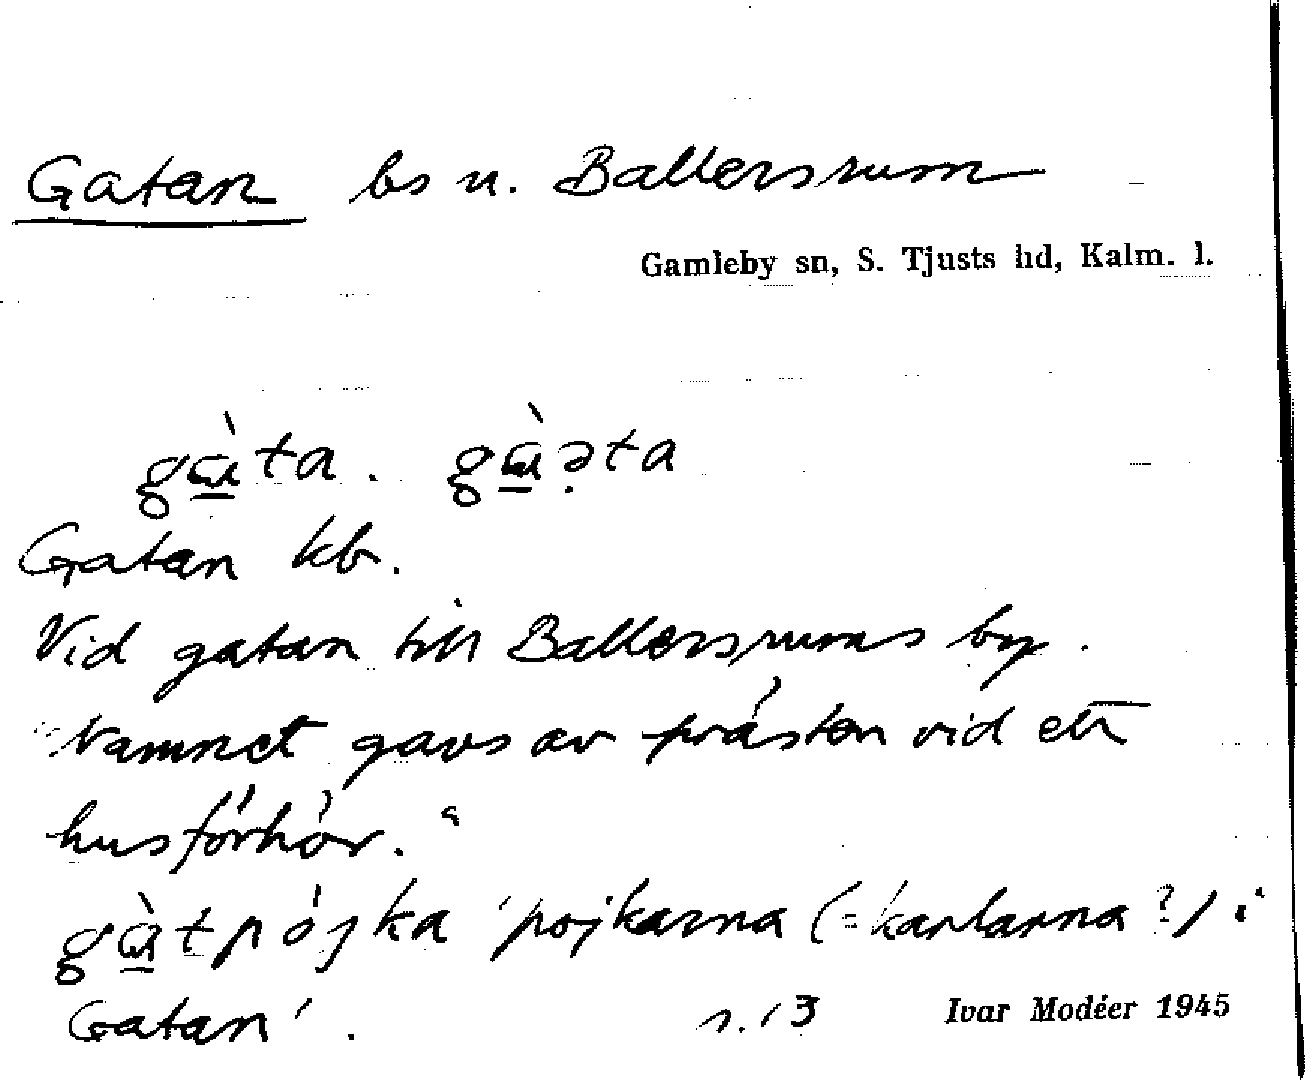 Gatan bs u. Ballersrum
Gamleby sn, S. Tjusts hd, Kalm. l.
gɑ̀ta. gɑ̀ə̣ta
Gatan kb.
Vid gatan till Ballersrums by.
"Namnet gavs av prästen vid ett
husförhör."
gɑ̀tpójka 'pojkarna (=karlarna?) i
Gatan'.
s. 13 Ivar Modéer 1945